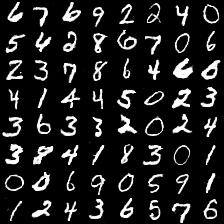 6 7 6 9 2 2 4 0
5 4 2 8 6 7 0 6
2 3 7 8 6 4 6 6
4 1 4 4 5 0 2 3
3 6 3 3 2 0 2 4
3 8 4 1 8 3 0 1
0 0 6 9 0 5 9 1
1 2 4 3 6 5 7 5